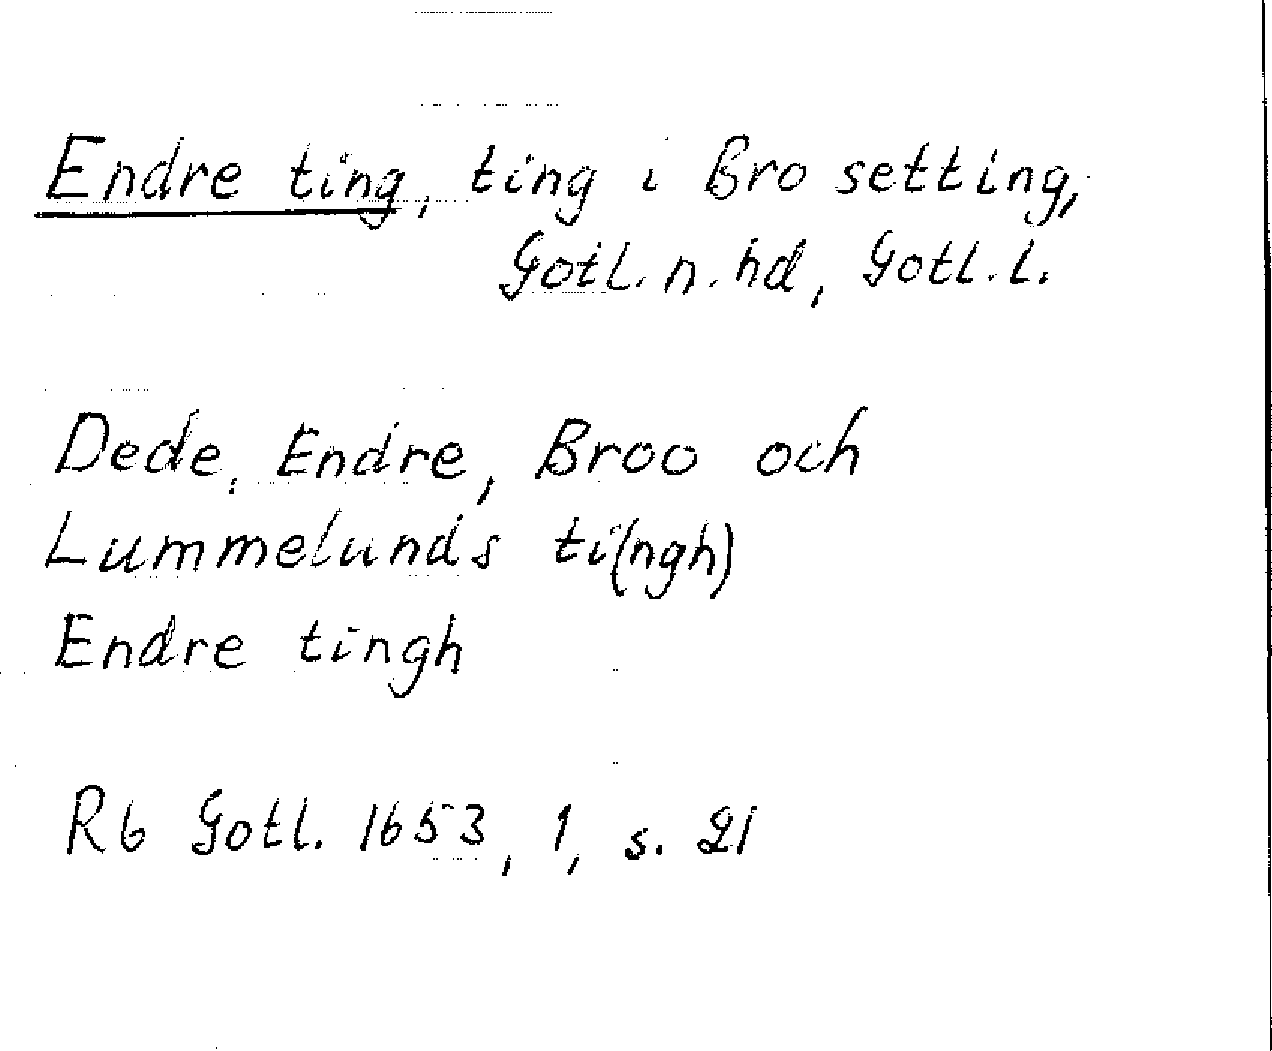 Endre ting, ting i Bro setting,
Gotl. n. hd, Gotl. l.
Dede, Endre, Broo och
Lummelunds ti(ngh)
Endre tingh
Rb Gotl. 1653, 1, s. 21